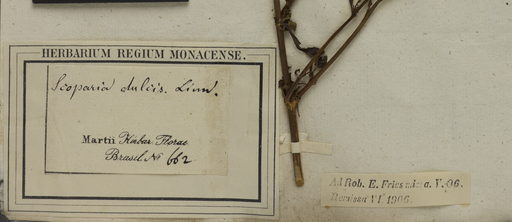 HERBARIUM REGIUM MONACENSE.
Scoparia dulcis. Linn.
Martii Herbar. Florae
Brasil. No 662
Ad Rob. E. Fries missa. V. 06.
Remissa VI 1906.